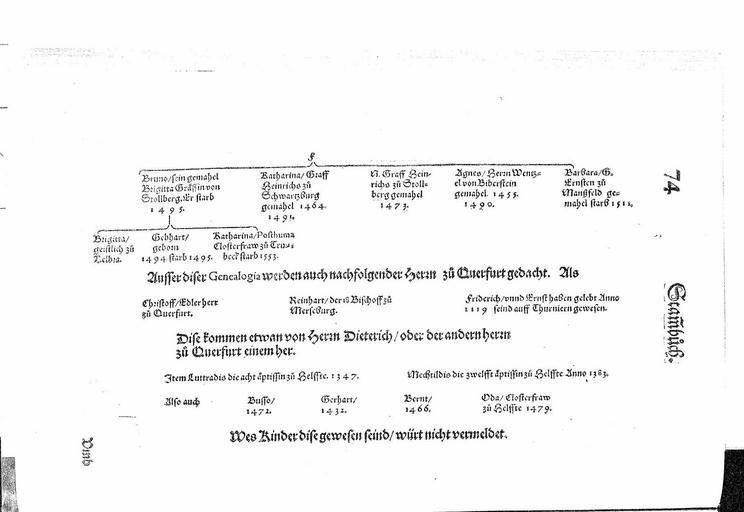 F
Bruno/sein gemahel
Brigitta Gräffin von
Stollberg. Er starb
1495.
Katharina/ Graff
Heinrichs zü
Schwartzburg
gemahel 1464.
1491.
N. Graff Hein-
richs zü Stoll-
berg gemahel
1473.
Agnes/ Herrn Wentz-
el von Biberstein
gemahel. 1455.
1490.
Barbara/ G.
Ernsten zü
Manßfeld ge-
mahel starb 1511.
Brigitta/
geistlich zü
Helbra.
Gebhart/
geborn
1494 starb 1495.
Katharina/Posthuma
Closterfraw zü
beck starb 1553.
Ausser diser Genealogia werden auch nachfolgender Herrn zü Querfurt gedacht. Als
Christoff/Edler herr
zü Querfurt.
Reinhart/ der 18 Bischoff zü
Merseburg.
Friderich/ vnnd Ernst haben gelebt Anno
1119 seind auff Thurniern gewesen.
Dise kommen etwan von Herrn Dieterich/ oder der andern herrn
zü Querfurt einem her.
Item Luttradis die acht äptissin zü Helffte. 1347.
Mechtildis die zwelfft äptissin zü Helffte Anno 1383.
Also auch
Busso/
1472.
Gerhart/
1432.
Bernt/
1466.
Oda/ Closterfraw
zü Helffte 1479.
Wes Kinder dise gewesen seind/ würt nicht vermeldet.
74
Stam̃büch.
Vnnd